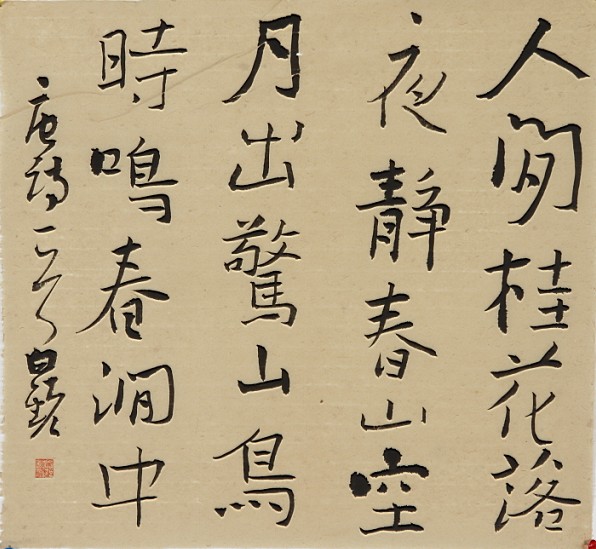 人閒桂花落
夜靜春山空
月出驚山鳥
時鳴春澗中
唐詩一首